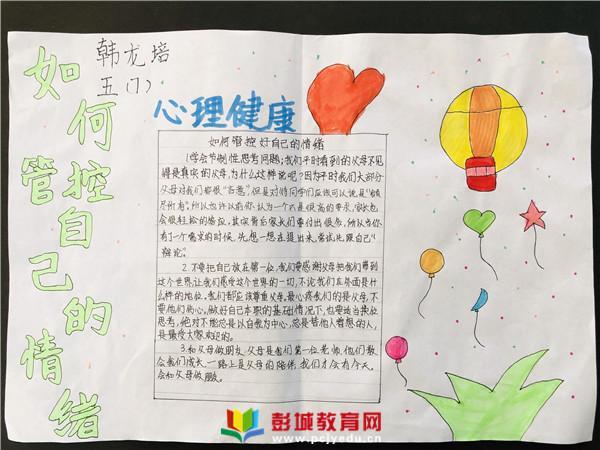 韩龙培
五(1)
如何管控自己的情绪
心理健康
如何管控好自己的情绪
1.学会节制性思考问题,我们平时看到的父母不见
得是真实的父母,为什么这样说呢?因为平时我们大部分
父母对我们都很
但是对待同学们应该可以说是
尽所有".所以当许
认为一个不是很高的要求,家长也
会很轻松的给应,其实背后家长们要付出很多,所以当你
有了一个需求的时候,先想一想在提出来,尝试先跟自己"
辩论".
2.不要把自己放在第一位,我们要感谢父母把我们带到
这个世界,让我们感受这个世界的一切,不论我们在外面是什
么样的地位,我们都应该尊重父母,最心疼我们的是父母,不
要伤他们的心,做好自己本职的基础情况下,也要适当换位
思考,绝对不能总是以自我为中心,总是替他人着想的人,
是最受大家欢迎的。
3.和父母做朋友,父母是我们第一位老师,他们教
会我们成长,一路上是父母的陪伴,我们才会有今天,
会和父母做朋友。
彭城教育网
www.pcjyedu.cn